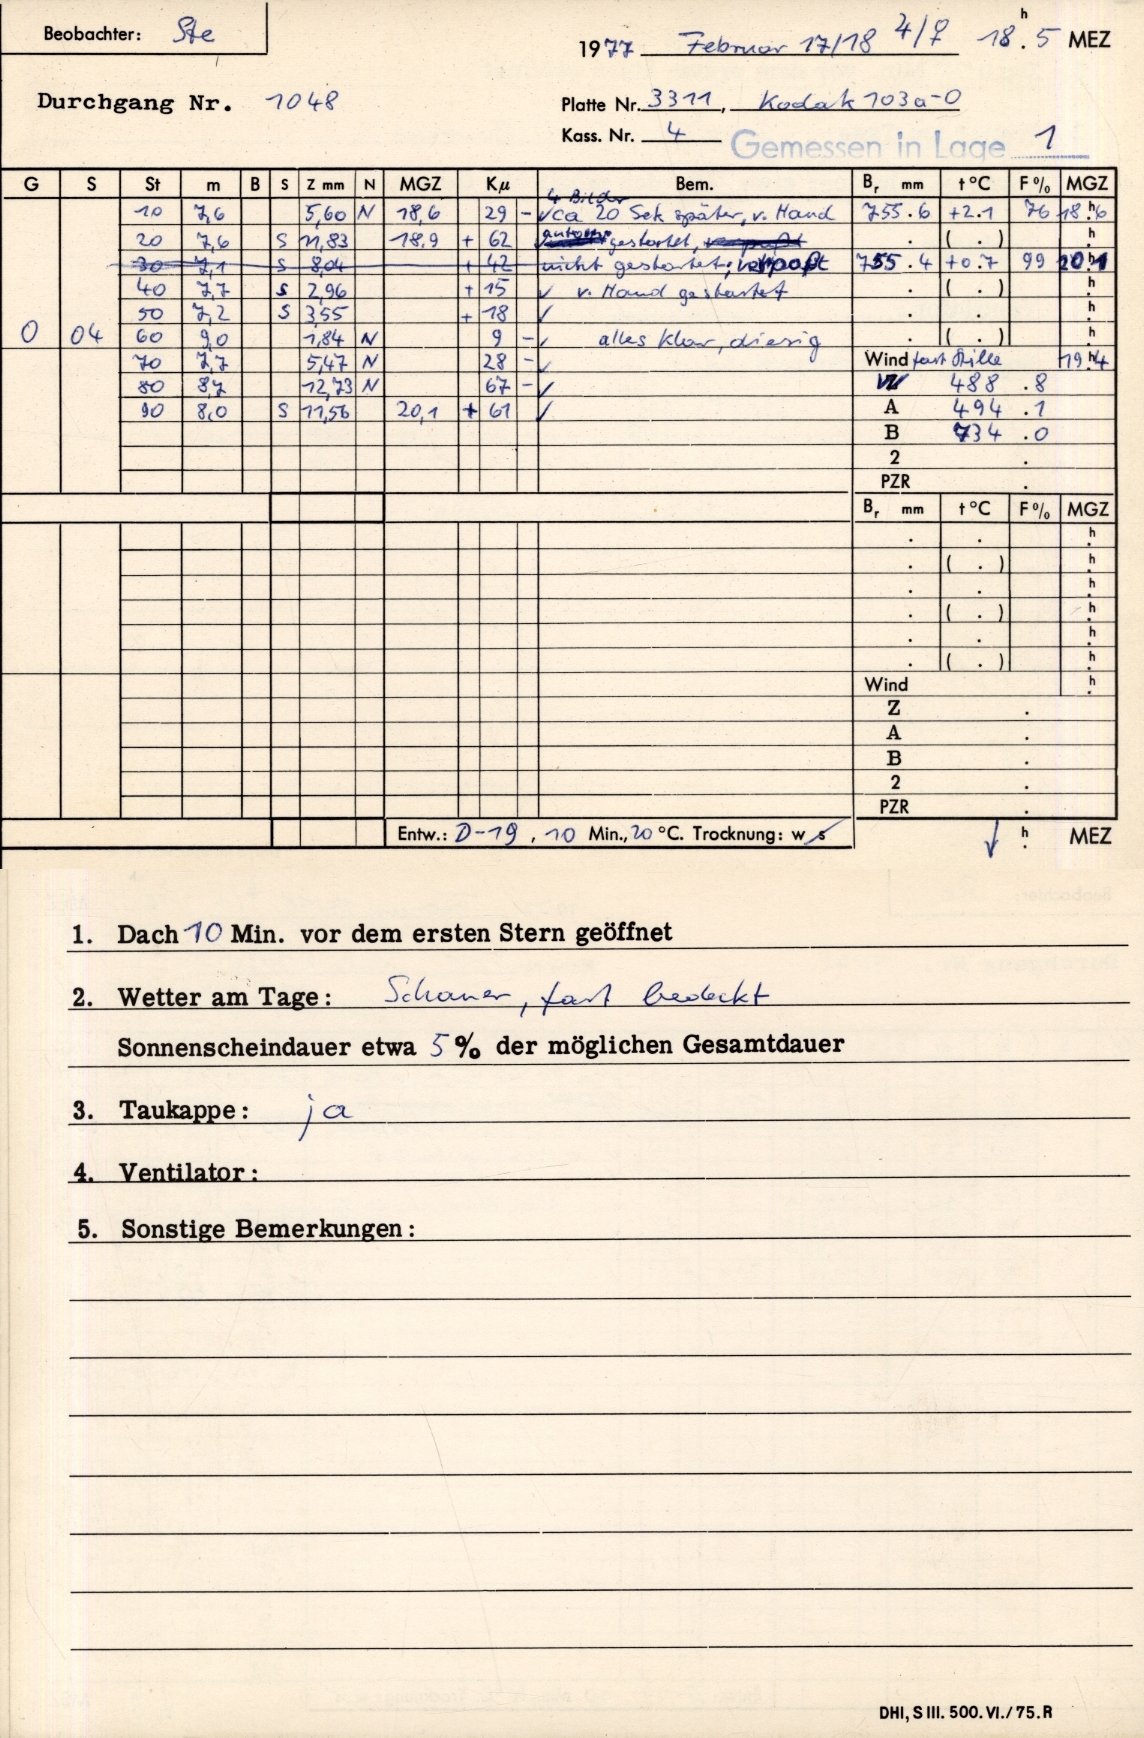 Beobachter: Ste
1977 Februar 17/18 4/7 18h.5 MEZ
Durchgang Nr. 1048
Platte Nr. 3311, Kodak 103a-O
Kass. Nr. 4 Gemessen in Lage 1
G S St m B S Z mm N MGZ Kμ Bem. Br mm t °C F % MGZ
4 Bilder
10 7,6 5,60 N 18,6 29 - √ ca 20 Sek später, v. Hand 755.6 +2.1 76 18h.6
20 7,6 S 11,83 18,9 + 62 gestartet, . ( . ) h.
30 7,1 S 8,04 + 42 nicht gestartet; verpaßt 755.4 +0.7 99 20h.1
40 7,7 S 2,96 + 15 √ v. Hand gestartet . ( . ) h.
50 7,2 S 3,55 + 18 √ . . h.
0 04 60 9,0 1,84 N 9 - √ alles klar, diesig . ( . ) h.
70 7,7 5,47 N 28 - √ Wind fast Stille 19h.4
80 8,7 12,73 N 67 - √ 488.8
90 8,0 S 11,56 20,1 + 61 √ A 494.1
B 734.0
2 .
PZR .
Br mm t °C F % MGZ
. . h.
. ( . ) h.
. . h.
. ( . ) h.
. . h.
. ( . ) h.
Wind h.
Z .
A .
B .
2 .
PZR .
Entw.: D-19, 10 Min., 20 °C. Trocknung: w s h. MEZ
1. Dach 10 Min. vor dem ersten Stern geöffnet
2. Wetter am Tage: Schauer, fast bedeckt
Sonnenscheindauer etwa 5 % der möglichen Gesamtdauer
3. Taukappe: ja
4. Ventilator:
5. Sonstige Bemerkungen:
DHI, S III. 500. VI./75. R